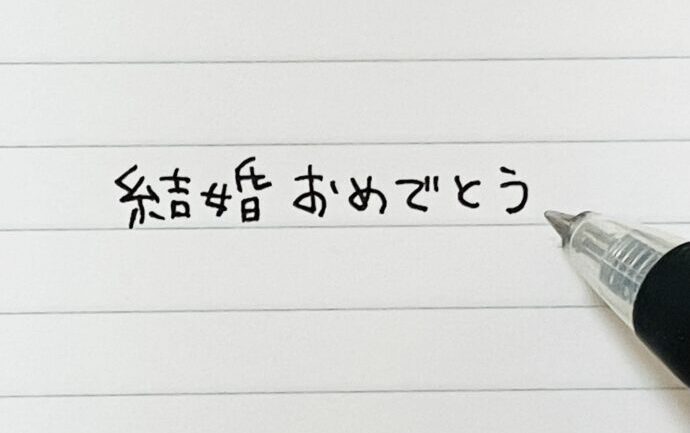 結婚おめでとう